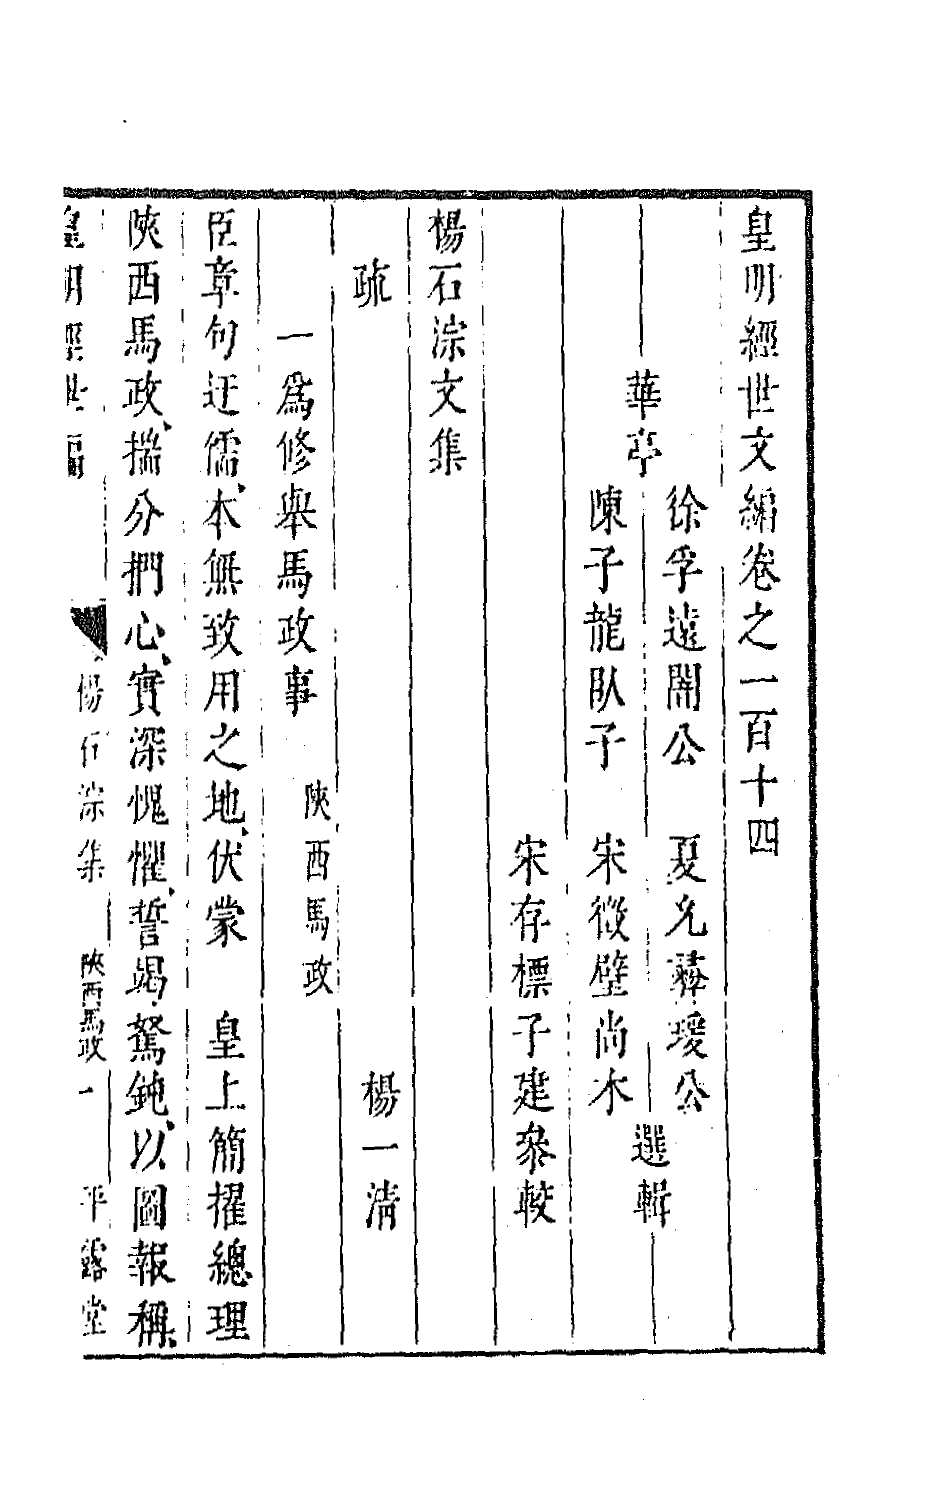 皇明經世文編卷之一百十四
華亭
徐孚遠闇公　夏允彝瑗公
陳子龍臥子　宋徵璧尚木
選輯
宋存標子建參較
楊石淙文集
疏　楊一清
一爲修舉馬政事　陝西馬政
臣章句迂儒、本無致用之地、伏蒙　皇上簡擢總理
陝西馬政、揣分捫心、實深愧懼、誓竭駑鈍、以圖報稱、
皇明經世編　楊石淙集　陝西馬政　一　平露堂